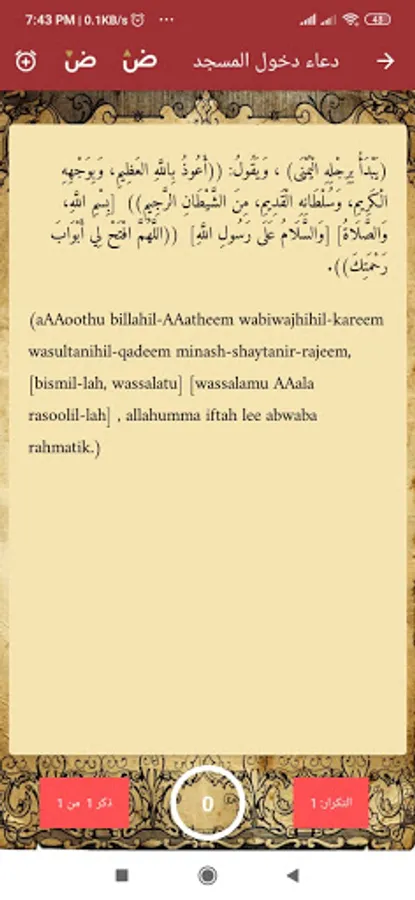 7:43 PM | 0.1KB/s ...
48
دعاء دخول المسجد
ض ض
(يَبْدَأُ بِرِجْلِهِ الْيُمْنَى) ، وَيَقُولُ: ((أَعُوذُ بِاللَّهِ العَظِيمِ، وَبِوَجْهِهِ
الْكَرِيمِ، وَسُلْطَانِهِ الْقَدِيمِ، مِنَ الشَّيْطَانِ الرَّجِيمِ)) [بِسْمِ اللَّهِ،
وَالصَّلَاةُ] [وَالسَّلَامُ عَلَى رَسُولِ اللَّهِ] ((اللَّهُمَّ افْتَحْ لِي أَبْوَابَ
رَحْمَتِكَ)).
(aAAoothu billahil-AAatheem wabiwajhihil-kareem
wasultanihil-qadeem minash-shaytanir-rajeem,
[bismil-lah, wassalatu] [wassalamu AAala
rasoolil-lah] , allahumma iftah lee abwaba
rahmatik.)
التكرار: 1
0
ذكر 1 من 1